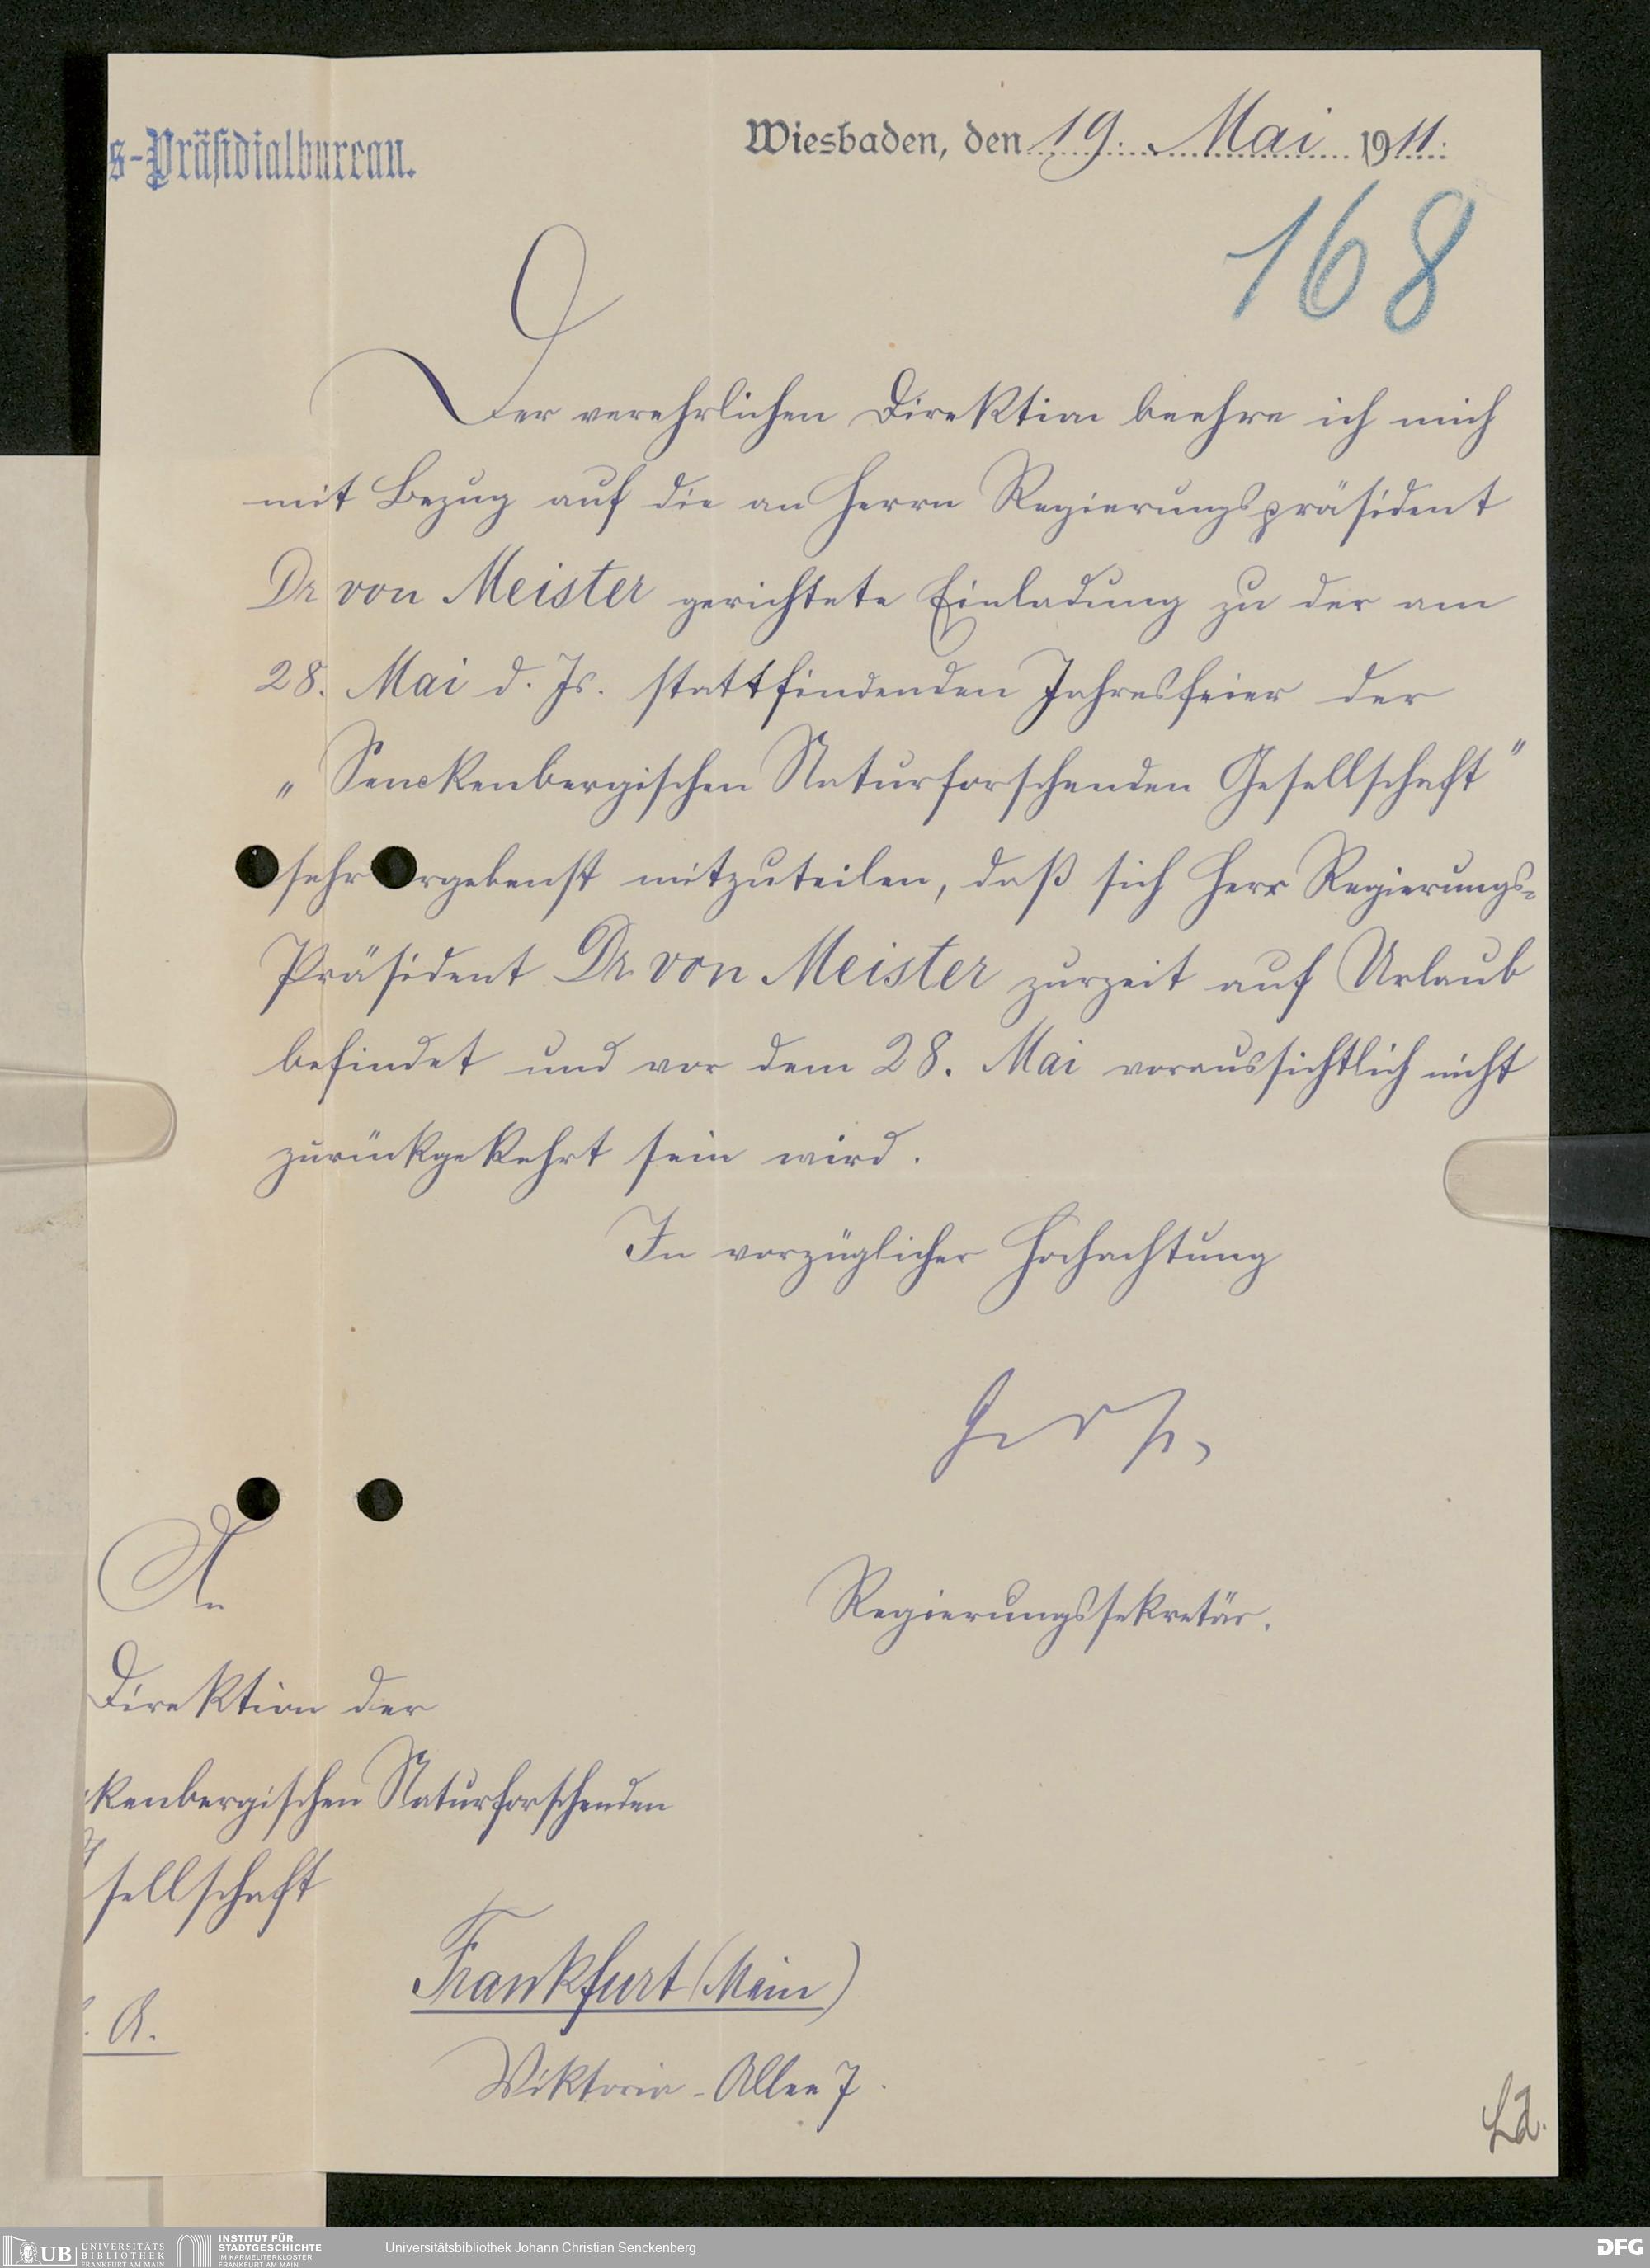 s-Präsidialbureau.
Wiesbaden, den 19. Mai 1911.
168
Der verehrlichen Direktion beehre ich mich
mit Bezug auf die an Herrn Regierungspräsident
Dr von Meister gerichtete Einladung zu der am
28. Mai d. Js. stattfindenden Jahresfeier der
„Senckenbergischen Naturforschenden Gesellschaft"
sehr rgebenst mitzuteilen, daß sich Herr Regierungs=
Präsident Dr von Meister zurzeit auf Urlaub
befindet und vor dem 28. Mai voraussichtlich nicht
zurückgekehrt sein wird.
In vorzüglicher Hochachtung
Regierungssekretär.
An
Direktion der
kenbergischen Naturforschenden
sellschaft
Frankfurt (Main)
Viktoria-Allee 7.
UB UNIVERSITÄTS
BIBLIOTHEK
FRANKFURT AM MAIN
INSTITUT FÜR
STADTGESCHICHTE
IM KARMELITERKLOSTER
FRANKFURT AM MAIN
Universitätsbibliothek Johann Christian Senckenberg
DFG